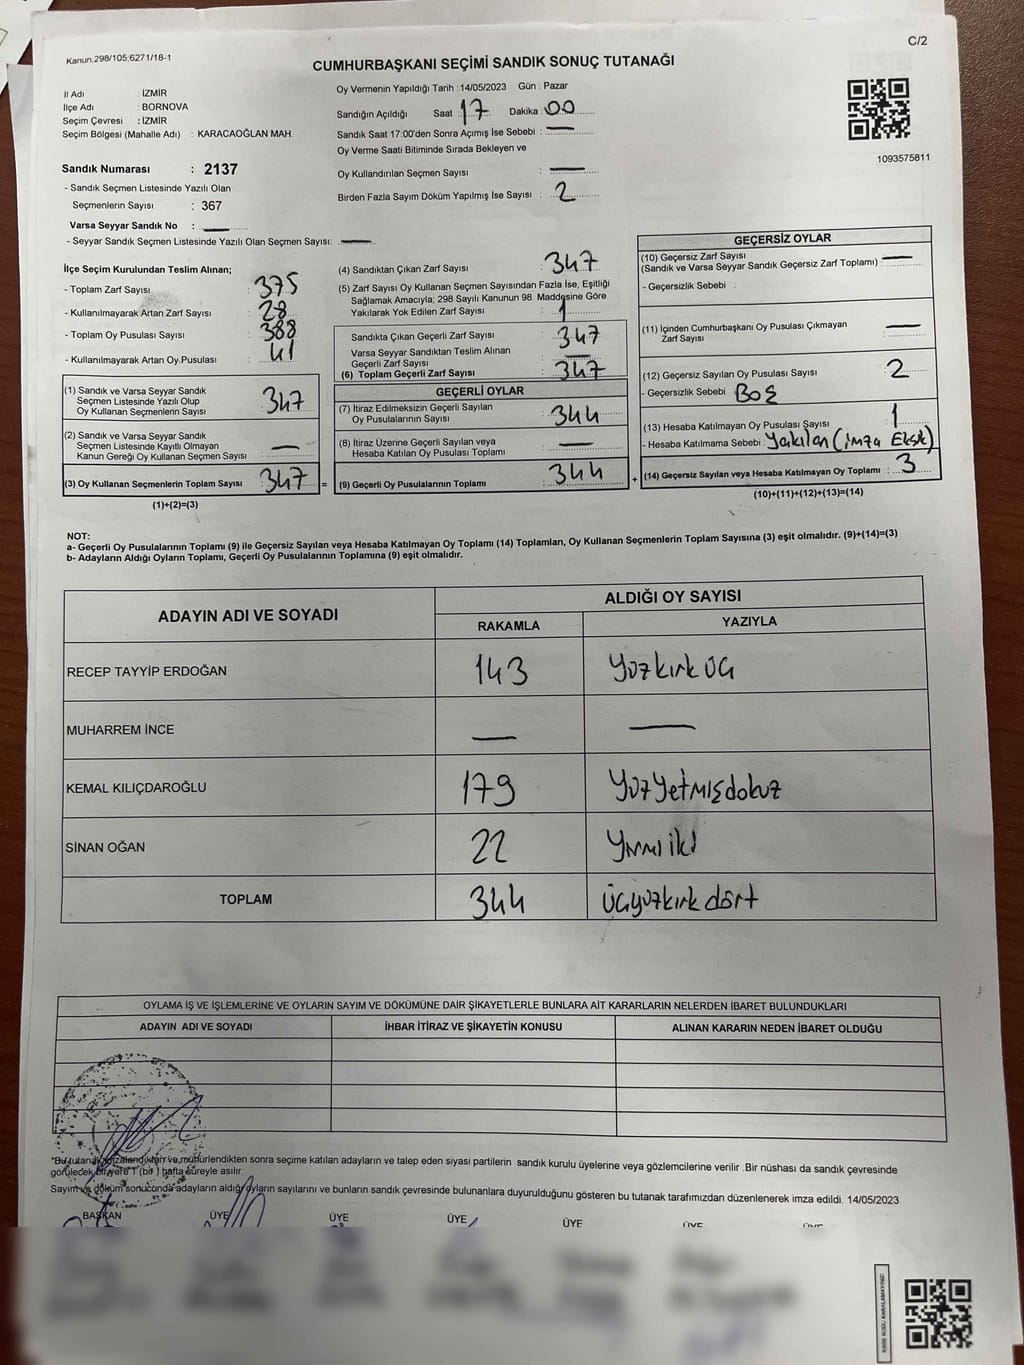 C/2
Kanun;298/105;6271/18-1
CUMHURBAŞKANI SEÇİMİ SANDIK SONUÇ TUTANAĞI
İl Adı : İZMİR
İlçe Adı : BORNOVA
Seçim Çevresi : İZMİR
Seçim Bölgesi (Mahalle Adı) : KARACAOĞLAN MAH.
Oy Vermenin Yapıldığı Tarih :14/05/2023 Gün : Pazar
Sandığın Açıldığı Saat : 17 Dakika : 00
Sandık Saat 17:00'den Sonra Açımış İse Sebebi : —
Oy Verme Saati Bitiminde Sırada Bekleyen ve
Oy Kullandırılan Seçmen Sayısı : —
Birden Fazla Sayım Döküm Yapılmış İse Sayısı : 2
1093575811
Sandık Numarası : 2137
- Sandık Seçmen Listesinde Yazılı Olan
Seçmenlerin Sayısı : 367
Varsa Seyyar Sandık No : —
- Seyyar Sandık Seçmen Listesinde Yazılı Olan Seçmen Sayısı: —
İlçe Seçim Kurulundan Teslim Alınan;
- Toplam Zarf Sayısı : 375
- Kullanılmayarak Artan Zarf Sayısı : 28
- Toplam Oy Pusulası Sayısı : 388
- Kullanılmayarak Artan Oy Pusulası : 41
(1) Sandık ve Varsa Seyyar Sandık
Seçmen Listesinde Yazılı Olup
Oy Kullanan Seçmenlerin Sayısı : 347
(2) Sandık ve Varsa Seyyar Sandık
Seçmen Listesinde Kayıtlı Olmayan
Kanun Gereği Oy Kullanan Seçmen Sayısı : —
(3) Oy Kullanan Seçmenlerin Toplam Sayısı : 347 =
(1)+(2)=(3)
(4) Sandıktan Çıkan Zarf Sayısı : 347
(5) Zarf Sayısı Oy Kullanan Seçmen Sayısından Fazla İse, Eşitliği
Sağlamak Amacıyla; 298 Sayılı Kanunun 98. Maddesine Göre
Yakılarak Yok Edilen Zarf Sayısı : 1
Sandıkta Çıkan Geçerli Zarf Sayısı : 347
Varsa Seyyar Sandıktan Teslim Alınan
Geçerli Zarf Sayısı : —
(6) Toplam Geçerli Zarf Sayısı : 347
GEÇERLİ OYLAR
(7) İtiraz Edilmeksizin Geçerli Sayılan
Oy Pusulalarının Sayısı : 344
(8) İtiraz Üzerine Geçerli Sayılan veya
Hesaba Katılan Oy Pusulası Toplamı : —
(9) Geçerli Oy Pusulalarının Toplamı : 344 +
GEÇERSİZ OYLAR
(10) Geçersiz Zarf Sayısı
(Sandık ve Varsa Seyyar Sandık Geçersiz Zarf Toplamı) : —
- Geçersizlik Sebebi :
(11) İçinden Cumhurbaşkanı Oy Pusulası Çıkmayan
Zarf Sayısı : —
(12) Geçersiz Sayılan Oy Pusulası Sayısı : 2
- Geçersizlik Sebebi : BOŞ
(13) Hesaba Katılmayan Oy Pusulası Sayısı : 1
- Hesaba Katılmama Sebebi : Yakılan (İmza Eksik)
(14) Geçersiz Sayılan veya Hesaba Katılmayan Oy Toplamı : 3
(10)+(11)+(12)+(13)=(14)
NOT:
a- Geçerli Oy Pusulalarının Toplamı (9) ile Geçersiz Sayılan veya Hesaba Katılmayan Oy Toplamı (14) Toplamları, Oy Kullanan Seçmenlerin Toplam Sayısına (3) eşit olmalıdır. (9)+(14)=(3)
b- Adayların Aldığı Oyların Toplamı, Geçerli Oy Pusulalarının Toplamına (9) eşit olmalıdır.
ADAYIN ADI VE SOYADI
ALDIĞI OY SAYISI
RAKAMLA YAZIYLA
RECEP TAYYİP ERDOĞAN 143 Yüzkırk üç
MUHARREM İNCE — —
KEMAL KILIÇDAROĞLU 179 Yüzyetmişdokuz
SİNAN OĞAN 22 Yirmi iki
TOPLAM 344 Üçyüzkırk dört
OYLAMA İŞ VE İŞLEMLERİNE VE OYLARIN SAYIM VE DÖKÜMÜNE DAİR ŞİKAYETLERLE BUNLARA AİT KARARLARIN NELERDEN İBARET BULUNDUKLARI
ADAYIN ADI VE SOYADI İHBAR İTİRAZ VE ŞİKAYETİN KONUSU ALINAN KARARIN NEDEN İBARET OLDUĞU
*Bu tutanak imzalandıktan ve mühürlendikten sonra seçime katılan adayların ve talep eden siyasi partilerin sandık kurulu üyelerine veya gözlemcilerine verilir .Bir nüshası da sandık çevresinde
görülecek bir yere 1 (bir ) hafta süreyle asılır.
Sayım ve döküm sonucunda adayların aldığı oyların sayılarını ve bunların sandık çevresinde bulunanlara duyurulduğunu gösteren bu tutanak tarafımızdan düzenlenerek imza edildi. 14/05/2023
BAŞKAN ÜYE ÜYE ÜYE ÜYE ÜYE ÜYE
KARE KODU KARALAMAYINIZ!